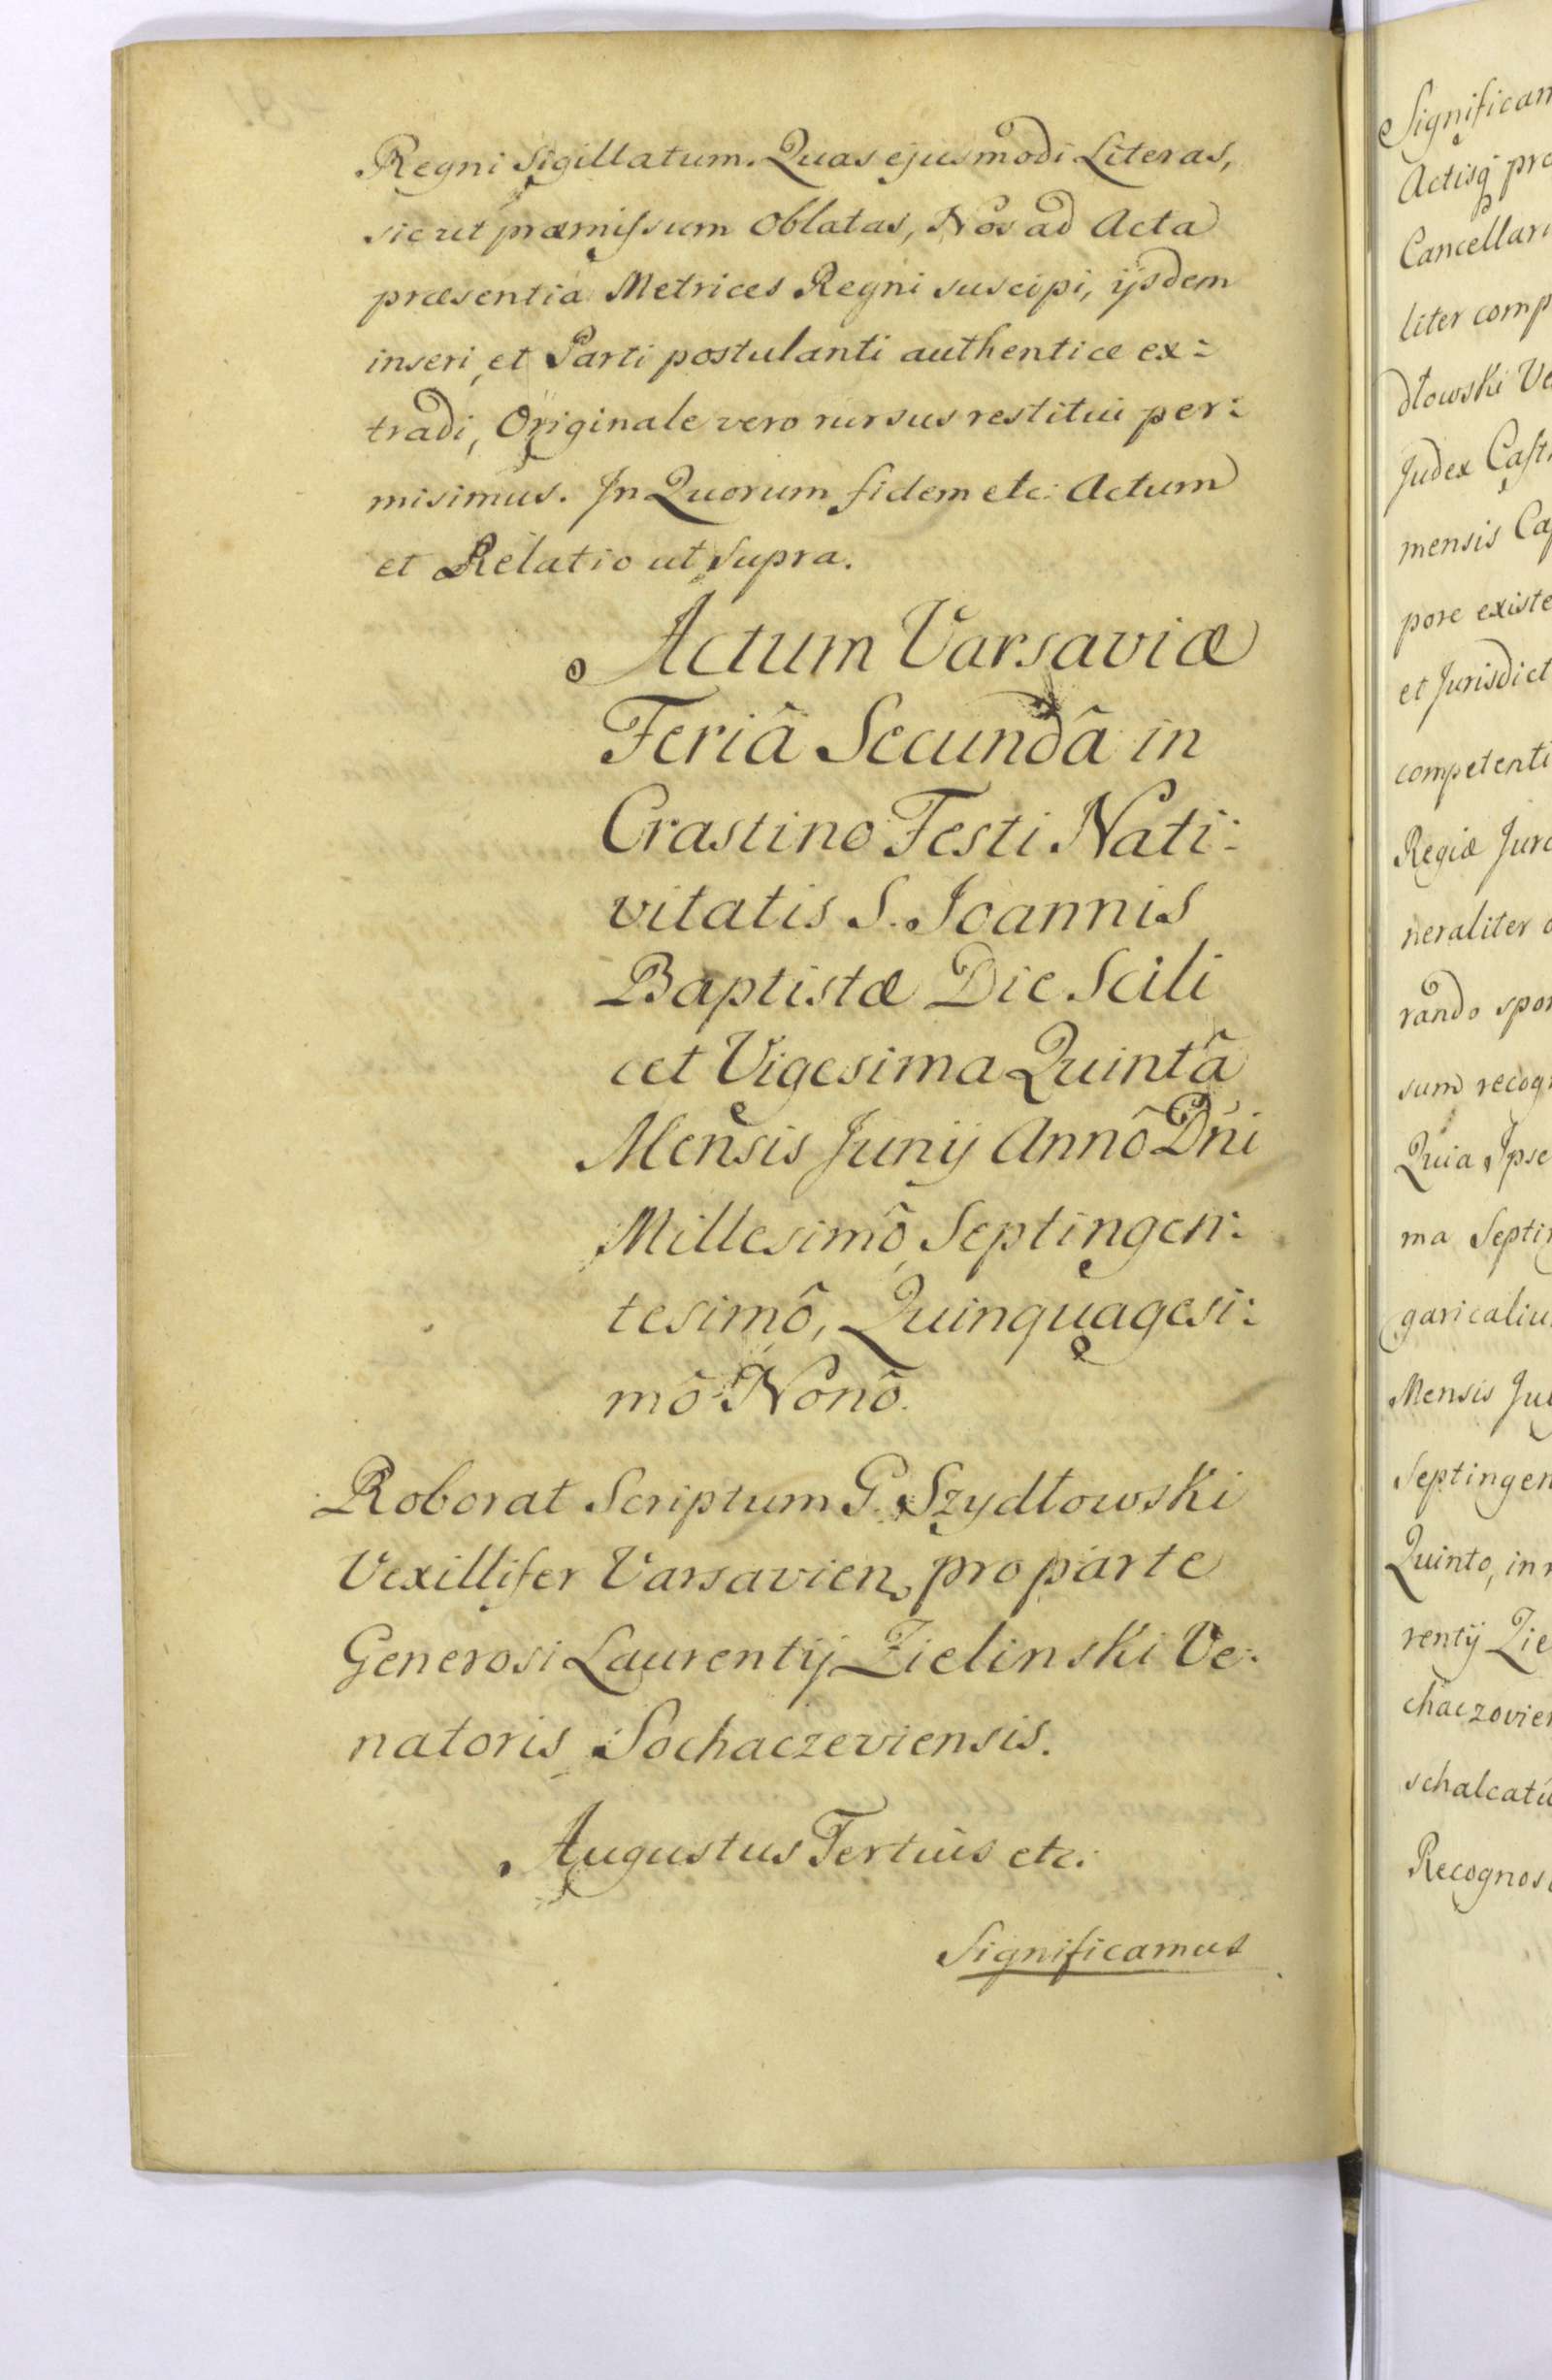 Regni Sigillatum. Quas ejusmodi Literas,
sicut præmissum Oblatas, Nos ad Acta
præsentia Metrices Regni suscipi, ijsdem
inseri, et Parti postulanti authentice ex:
tradi, Originale vero rursus restitui per:
misimus. In Quorum fidem etc: Actum
et Relatio ut Supra.
Actum Varsaviæ
Feriâ Secundâ in
Crastino Festi Nati:
vitatis S. Joannis
Baptistæ Die Scili
cet Vigesima Quintâ
Mensis Junij Annô Dńi
Millesimô Septingen:
tesimô, Quinquagesi:
mô Nonô.
Roborat Scriptum G. Szydłowski
Vexillifer Varsavien, pro parte
Generosi Laurentij Zielinski Ve:
natoris Sochaczeviensis.
Augustus Tertius etc:
Significamus
Significam
Actisq pro
Cancellari
liter comp
dłowski Ve
Judex Cast
mensis Cap
pore existe
et Jurisdict
competenti
Regiæ Jura
neraliter
rando spon
sum recogn
Quia Ipse
ma Septin
garicaliu
Mensis Jul
Septingen
Quinto, in
rentij Zie
chaczovien
schalcatu
Recognos